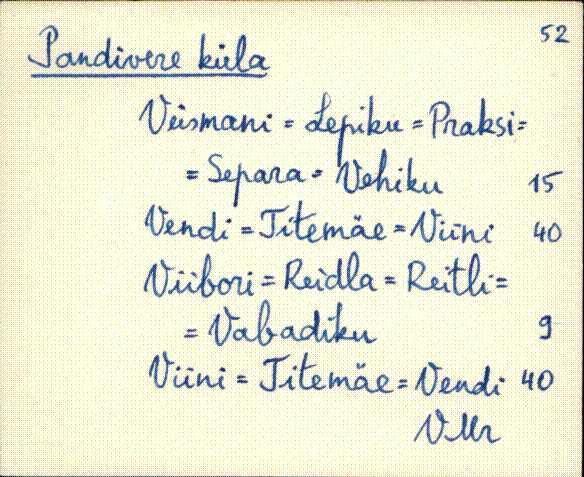 52
Pandivere küla
Veismani = Lepiku = Praksi =
= Separa = Vehiku 15
Vendi = Titemäe = Viini 40
Viibori = Reidla = Reitli =
= Vabadiku 9
Viini = Titemäe = Vendi 40
VMr